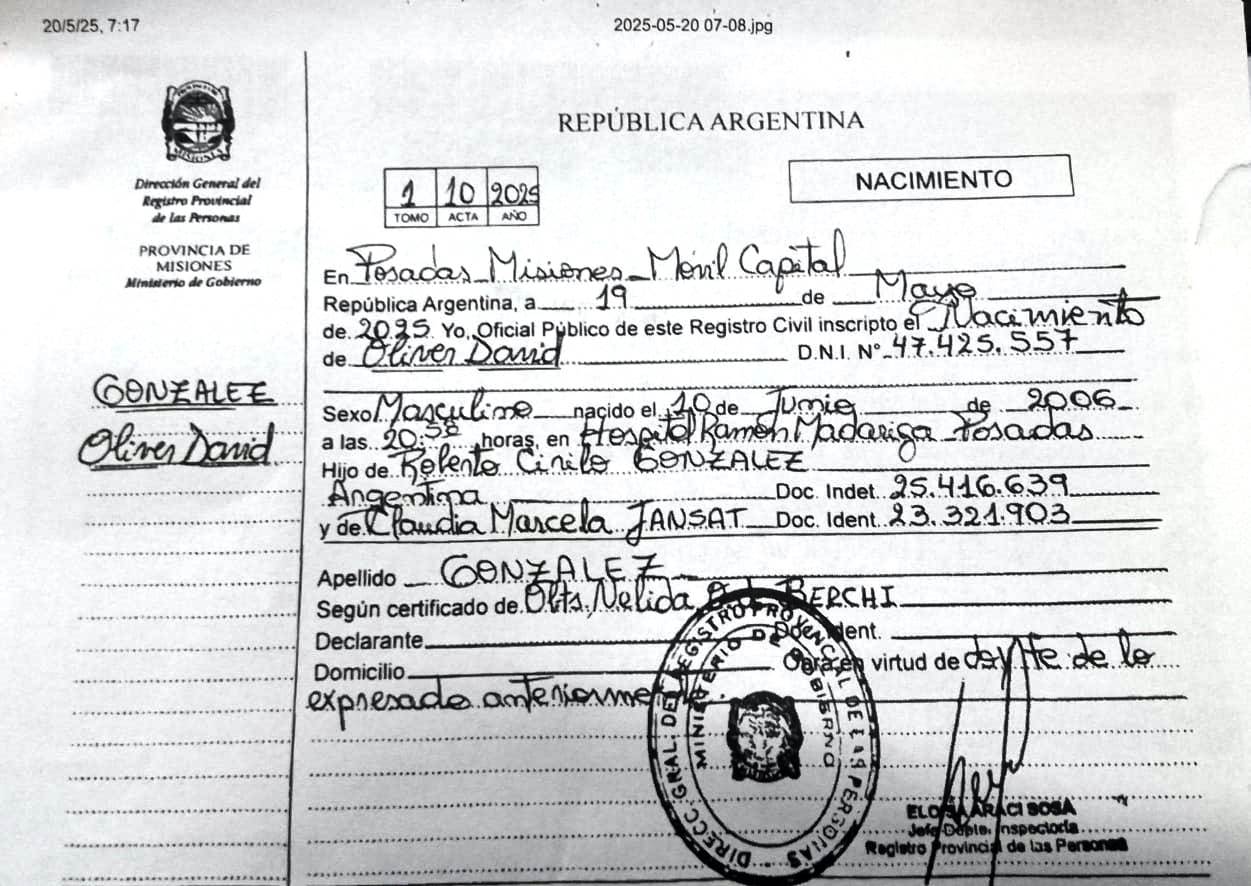 20/5/25, 7:17
2025-05-20 07-08.jpg
MISIONES
Dirección General del
Registro Provincial
de las Personas
PROVINCIA DE
MISIONES
Ministerio de Gobierno
GONZALEZ
Oliver David
REPÚBLICA ARGENTINA
1 10 2025
TOMO ACTA AÑO
NACIMIENTO
En Posadas Misiones Móvil Capital
República Argentina, a 19 de Mayo
de 2025 Yo, Oficial Público de este Registro Civil inscripto el Nacimiento
de Oliver David D.N.I. N° 47.425.557
Sexo Masculino nacido el 10 de Junio de 2006
a las 20:58 horas, en Hospital Ramón Madariga Posadas
Hijo de Roberto Cirilo GONZALEZ
Argentina Doc. Indet. 25.416.639
y de Claudia Marcela JANSAT Doc. Ident. 23.321.903
Apellido GONZALEZ
Según certificado de Obts. Nelida de BERCHI
Declarante Doc. Ident.
Domicilio Obra en virtud de de lo
expresado anteriormente
DIRECC. GRAL. DEL REGISTRO PROVINCIAL DE LAS PERSONAS
MINISTERIO DE GOBIERNO
ELOISA ARACI SOSA
Jefe Depto. Inspectoría
Registro Provincial de las Personas